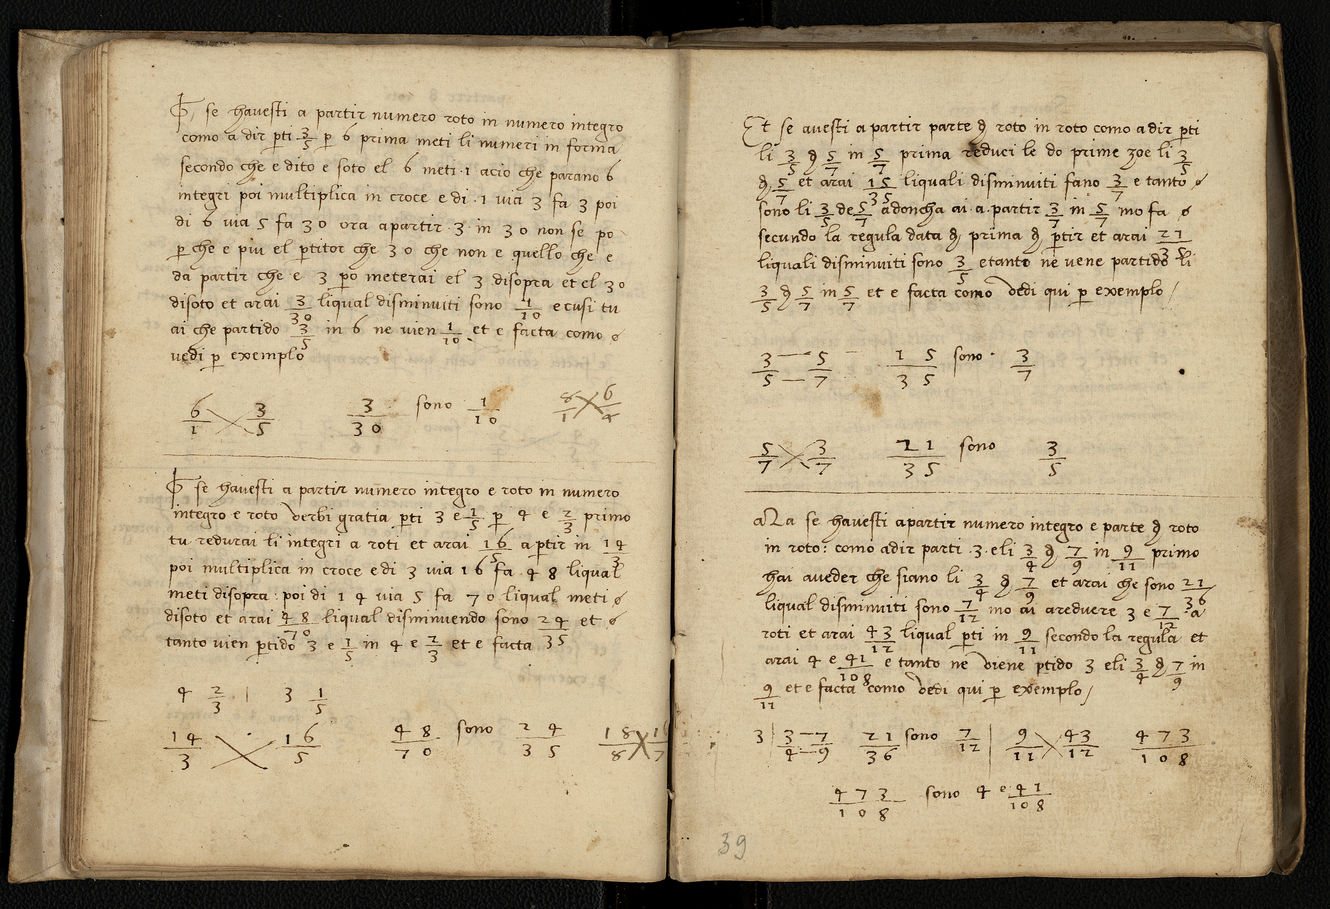 E se havesti a partir numero roto in numero integro
como a dir pti 3/5 p 6 prima meti li numeri in forma
secondo che e dito e soto el 6 meti · 1 acio che parano 6
integri poi multiplica in croce e di · 1 via 3 fa 3 poi
di 6 via 5 fa 30 ora apartir · 3 · in 30 non se po
p che e piu el ptitor che 30 che non e quello che e
da partir che e 3 po meterai el 3 disopra et el 30
disoto et arai 3/30 liqual disminuiti sono 1/10 e cusi tu
ai che partido 3/5 in 6 ne vien 1/10 · et e facta como e
vedi p exemplo
6/1 3/5 3/30 sono 1/10 8/1 6/4
E se havesti a partir numero integro e roto in numero
integro e roto verbi gratia pti 3 e 1/5 p 4 e 2/3 primo
tu redurai li integri a roti et arai 16/5 a ptir in 14/3
poi multiplica in croce e di 3 via 16 fa · 48 liqual
meti disopra · poi di 14 via 5 fa 70 liqual meti
disoto et arai 48/70 liqual disminuendo sono 24/35 et e
tanto vien ptido 3 e 1/5 in 4 e 2/3 et e facta
4 2/3 | 3 1/5
14/3 16/5 48/70 sono 24/35 18/8 16/7
Et se avesti a partir parte d roto in roto como a dir pti
li 3/5 d 5/7 in 5/7 prima reduci le do prime zoe li 3/5
d 5/7 et arai 15/35 liquali disminuiti fano 3/7 e tanto e
sono li 3/5 de 5/7 adoncha ai a · partir 3/7 in 5/7 mo fa
secundo la regula data d prima d ptir et arai 21/35
liquali disminuiti sono 3/5 e tanto ne vene partido li
3/5 d 5/7 in 5/7 et e facta como vedi qui p exemplo /
3/5 5/7 15/35 sono · 3/7
5/7 3/7 21/35 sono 3/5
Ma se havesti apartir numero integro e parte d roto
in roto : como adir parti · 3 · e li 3/4 d 7/9 in 9/11 primo
hai aveder che siano li 3/4 d 7/9 et arai che sono 21/36
liqual disminuiti sono 7/12 mo ai areduere 3 e 7/12 · a
roti et arai 43/12 liqual pti in 9/11 secondo la regula et
arai 4 e 41/108 e tanto ne viene ptido 3 e li 3/4 d 7/9 in
9/11 et e facta como vedi qui p exemplo /
3 | 3/4 7/9 21/36 sono 7/12 | 9/11 43/12 473/108
473/108 sono 4 e 41/108
39